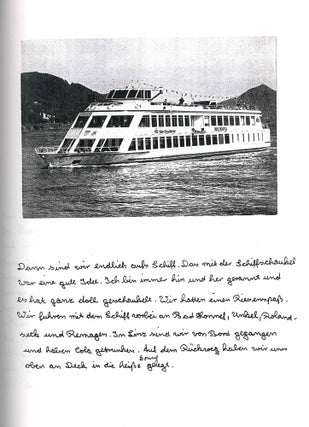 Dann sind wir endlich aufs Schiff. Das mit der Schiffschaukel
war eine gute Idee. Ich bin immer hin und her gerannt und
es hat ganz doll geschaukelt. Wir hatten einen Riesenspaß.
Wir fuhren mit dem Schiff vorbei an Bad Honnef, Unkel, Roland-
seck und Remagen. In Linz sind wir von Bord gegangen
und haben Cola getrunken. Auf dem Rückweg haben wir uns
oben an Deck in die heiße Sonne gelegt.